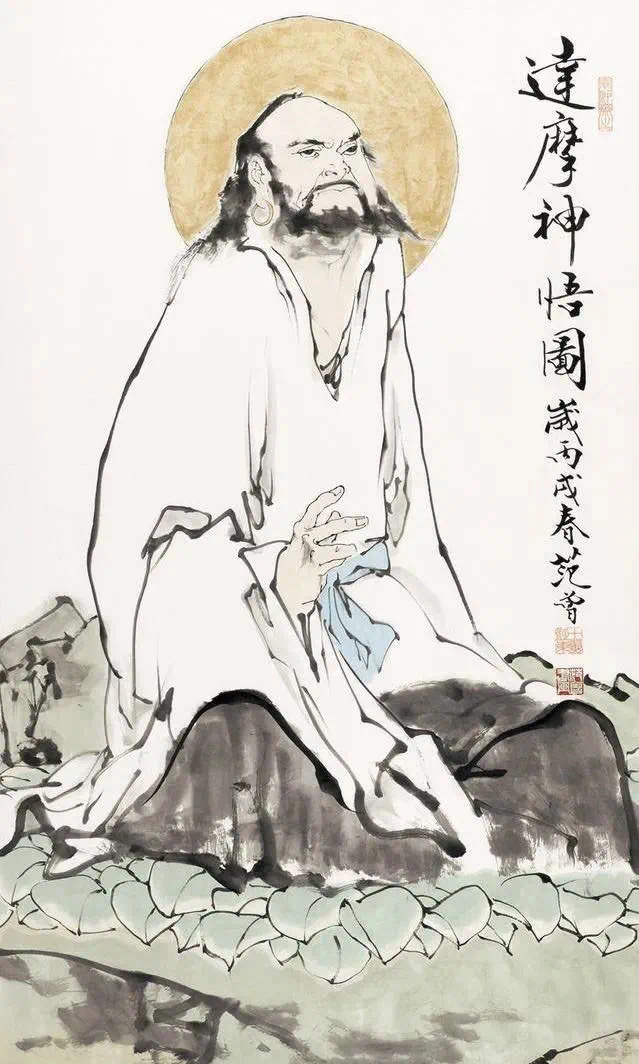 達摩神悟圖
歲丙戌春范曾